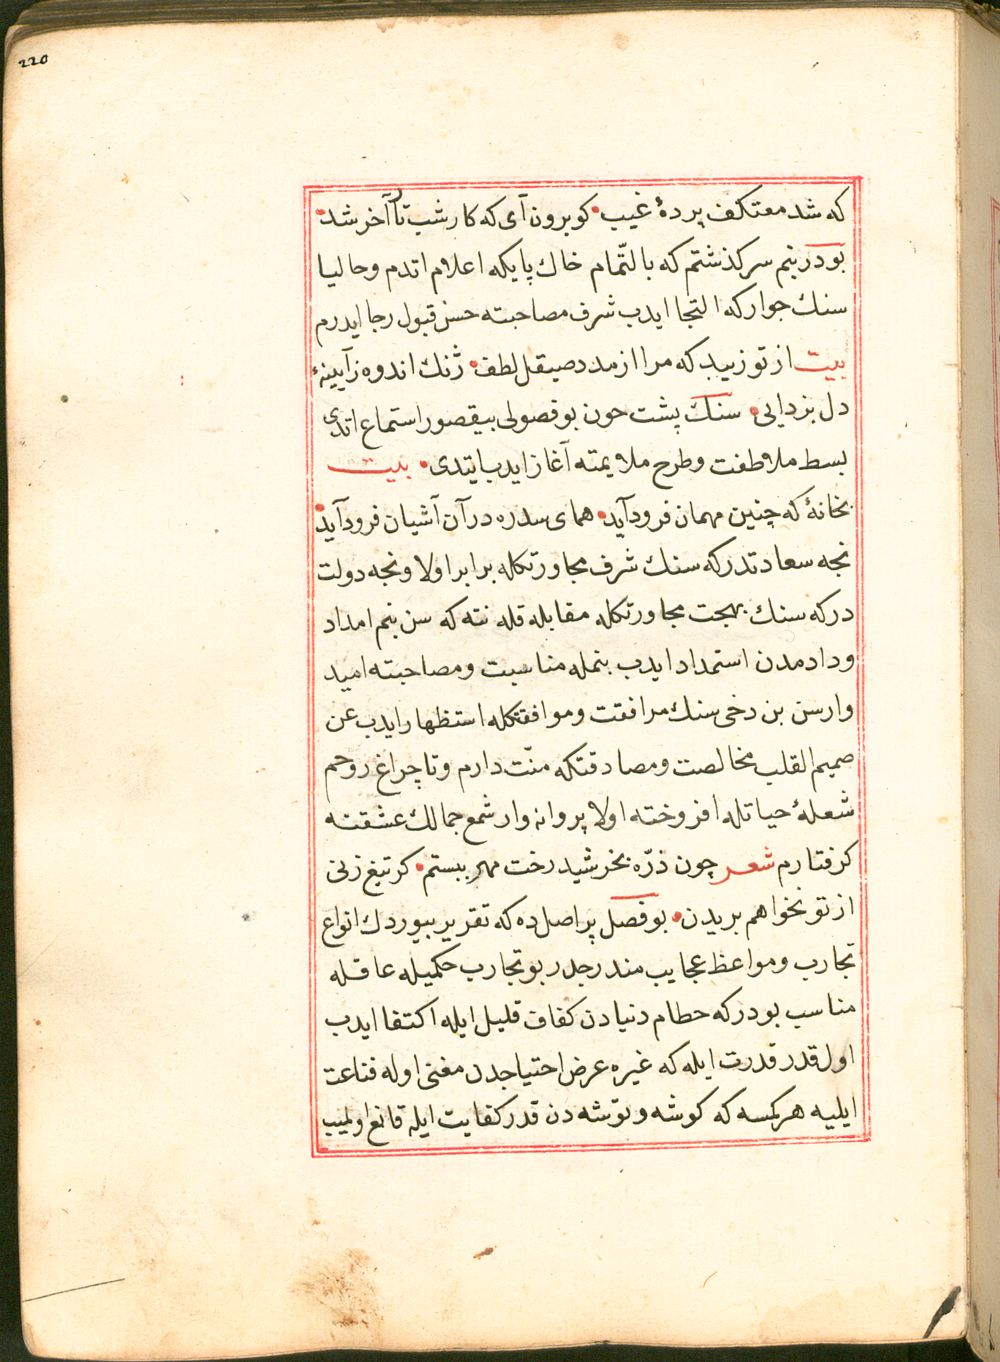 220
که شد معتکف پردۀ غیب کو برون آی که کار شب تار آخر شد
بودر بنم سرکذشتم که بالتّمام خاك پایکه اعلام اتدم وحالیا
سنك جوارکه التجا ایدب شرف مصاحبته حسن قبول رجا ایدرم
بیت از تو زیبد که مرا از مدد صیقل لطف ژنك اندوه ز آیینهٔ
دل بزدایی سنك پشت چون بو فصولی بیقصور استماع اتدی
بسط ملاطفت وطرح ملایمته آغاز ایدب ایتدی بیت
بخانۀ که چنین مهمان فرود آید همای سدره در آن آشیان فرود آید
نجه سعادتدر که سنك شرف مجاورتکله برابر اولا ونجه دولت
درکه سنك بهجت مجاورتکله مقابله قله نته که سن بنم امداد
ودادمدن استمداد ایدب بنمله مناسبت ومصاحبته امید
وارسن بن دخی سنك مرافقت وموافقتکله استظهار ایدب عن
صمیم القلب مخالصت ومصادقتکه منّت دارم وتا چراغ روحم
شعلۀ حیاتله افروخته اولا پروانه وار شمع جمالك عشقنه
کرفتارم شعر چون ذرّه بخرشید رخت مهر ببستم کر تیغ زنی
از تو نخواهم بریدن بو فصل پر اصل ده که تقریر بیوردك انواع
تجارب ومواعظ عجایب مندرجدر بو تجارب حکمیله عاقله
مناسب بودرکه حطام دنیادن کفاف قلیل ایله اکتفا ایدب
اول قدر قدرت ایله که غیره عرض احتیاجدن مغنی اوله قناعت
ایلیه هر کمسه که کوشه وتوشه دن قدر کفایت ایله قانع اولمیب